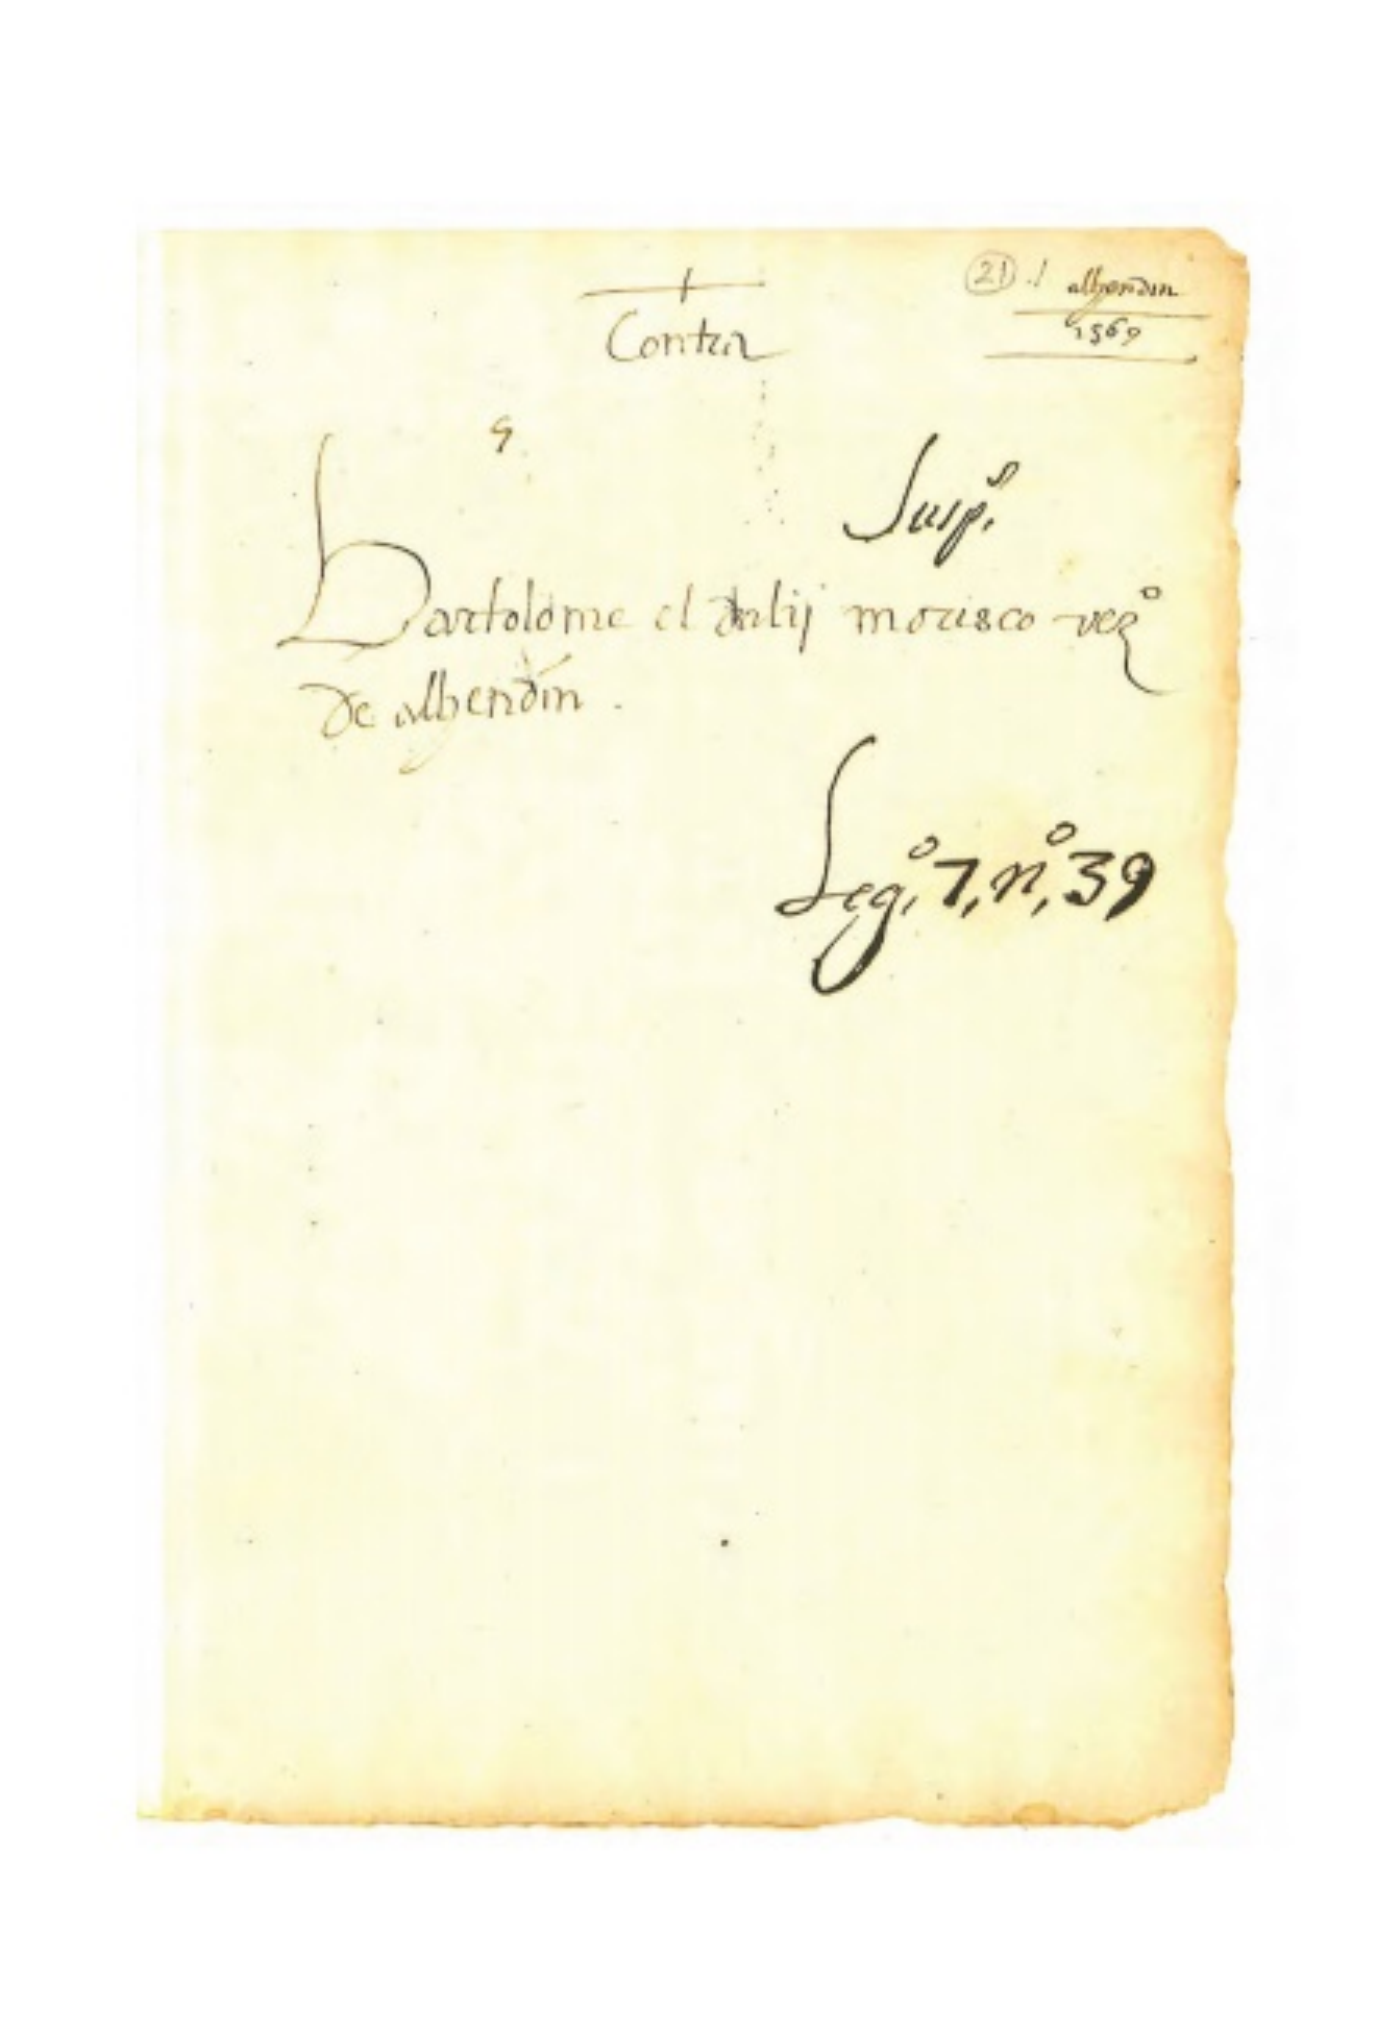 21 alhendin
1569
Contra
Susp.º
Bartolome el morisco vezº
de alhendin.
Legº, 7, nº, 39